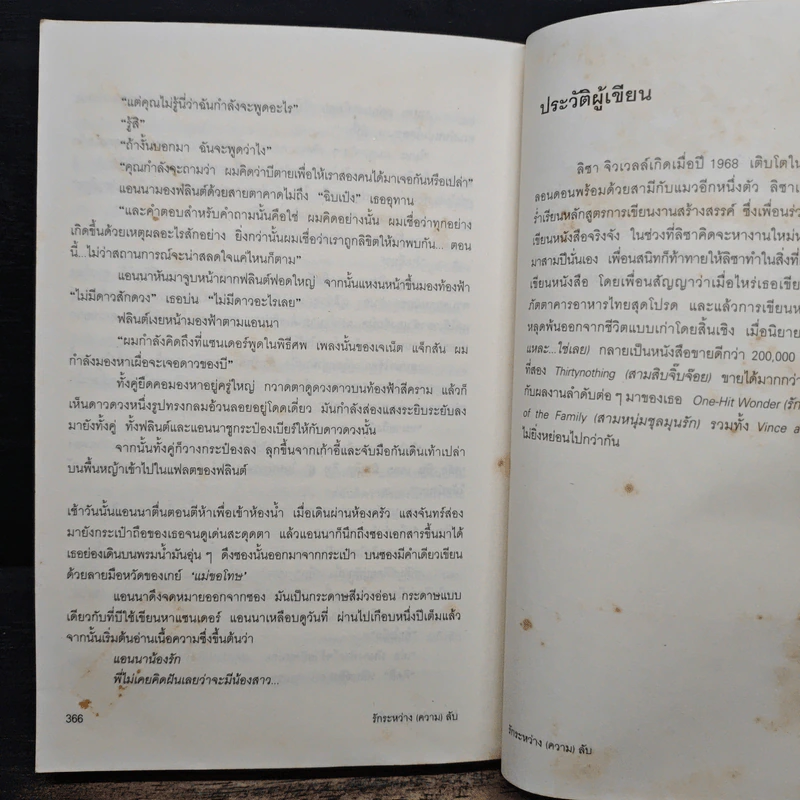 “แต่คุณไม่รู้นี่ว่าฉันกำลังจะพูดอะไร”
“รู้สิ”
“ถ้างั้นบอกมา ฉันจะพูดว่าไง”
“คุณกำลังจะถามว่า ผมคิดว่าบีตายเพื่อให้เราสองคนได้มาเจอกันหรือเปล่า”
แอนนามองฟลินต์ด้วยสายตาคาดไม่ถึง “ฉิบเป๋ง” เธออุทาน
“และคำตอบสำหรับคำถามนั้นคือใช่ ผมคิดอย่างนั้น ผมเชื่อว่าทุกอย่าง
เกิดขึ้นด้วยเหตุผลอะไรสักอย่าง ยิ่งกว่านั้นผมเชื่อว่าเราถูกลิขิตให้มาพบกัน... ตอน
นี้...ไม่ว่าสถานการณ์จะน่าสลดใจแค่ไหนก็ตาม”
แอนนาหันมาจูบหน้าผากฟลินต์ฟอดใหญ่ จากนั้นแหงนหน้าขึ้นมองท้องฟ้า
“ไม่มีดาวสักดวง” เธอบ่น “ไม่มีดาวอะไรเลย”
ฟลินต์เงยหน้ามองฟ้าตามแอนนา
“ผมกำลังคิดถึงที่แซนเดอร์พูดในพิธีศพ เพลงนั้นของเจเน็ต แจ็กสัน ผม
กำลังมองหาเผื่อจะเจอดาวของบี”
ทั้งคู่ยืดคอมองหาอยู่ครู่ใหญ่ กวาดตาดูดวงดาวบนท้องฟ้าสีคราม แล้วก็
เห็นดาวดวงหนึ่งรูปทรงกลมอ้วนลอยอยู่โดดเดี่ยว มันกำลังส่องแสงระยิบระยับลง
มายังทั้งคู่ ทั้งฟลินต์และแอนนาชูกระป๋องเบียร์ให้กับดาวดวงนั้น
จากนั้นทั้งคู่ก็วางกระป๋องลง ลุกขึ้นจากเก้าอี้และจับมือกันเดินเท้าเปล่า
บนพื้นหญ้าเข้าไปในแฟลตของฟลินต์
เช้าวันนั้นแอนนาตื่นตอนตีห้าเพื่อเข้าห้องน้ำ เมื่อเดินผ่านห้องครัว แสงจันทร์ส่อง
มายังกระเป๋าถือของเธอจนดูเด่นสะดุดตา แล้วแอนนาก็นึกถึงซองเอกสารขึ้นมาได้
เธอย่องเดินบนพรมน้ำมันอุ่น ๆ ดึงซองนั้นออกมาจากกระเป๋า บนซองมีคำเดียวเขียน
ด้วยลายมือหวัดของเกย์ ‘แม่ขอโทษ’
แอนนาดึงจดหมายออกจากซอง มันเป็นกระดาษสีม่วงอ่อน กระดาษแบบ
เดียวกับที่บีใช้เขียนหาแซนเดอร์ แอนนาเหลือบดูวันที่ ผ่านไปเกือบหนึ่งปีเต็มแล้ว
จากนั้นเริ่มต้นอ่านเนื้อความซึ่งขึ้นต้นว่า
แอนนาน้องรัก
พี่ไม่เคยคิดฝันเลยว่าจะมีน้องสาว...
366
รักระหว่าง (ความ) ลับ
ประวัติผู้เขียน
ลิซา จิวเวลล์เกิดเมื่อปี 1968 เติบโตใน
ลอนดอนพร้อมด้วยสามีกับแมวอีกหนึ่งตัว ลิซาเ
ร่ำเรียนหลักสูตรการเขียนงานสร้างสรรค์ ซึ่งเพื่อนร่ว
เขียนหนังสือจริงจัง ในช่วงที่ลิซาคิดจะหางานใหม่ห
มาสามปีนั่นเอง เพื่อนสนิทก็ท้าทายให้ลิซาทำในสิ่งที่
เขียนหนังสือ โดยเพื่อนสัญญาว่าเมื่อไหร่เธอเขีย
ภัตตาคารอาหารไทยสุดโปรด และแล้วการเขียนห
หลุดพ้นออกจากชีวิตแบบเก่าโดยสิ้นเชิง เมื่อนิยาย
แหละ...ใช่เลย) กลายเป็นหนังสือขายดีกว่า 200,000
ที่สอง Thirtynothing (สามสิบจิ๊บจ๊อย) ขายได้มากกว่า
กับผลงานลำดับต่อ ๆ มาของเธอ One-Hit Wonder (รัก
of the Family (สามหนุ่มชุลมุนรัก) รวมทั้ง Vince a
ไม่ยิ่งหย่อนไปกว่ากัน
รักระหว่าง (ความ) ลับ